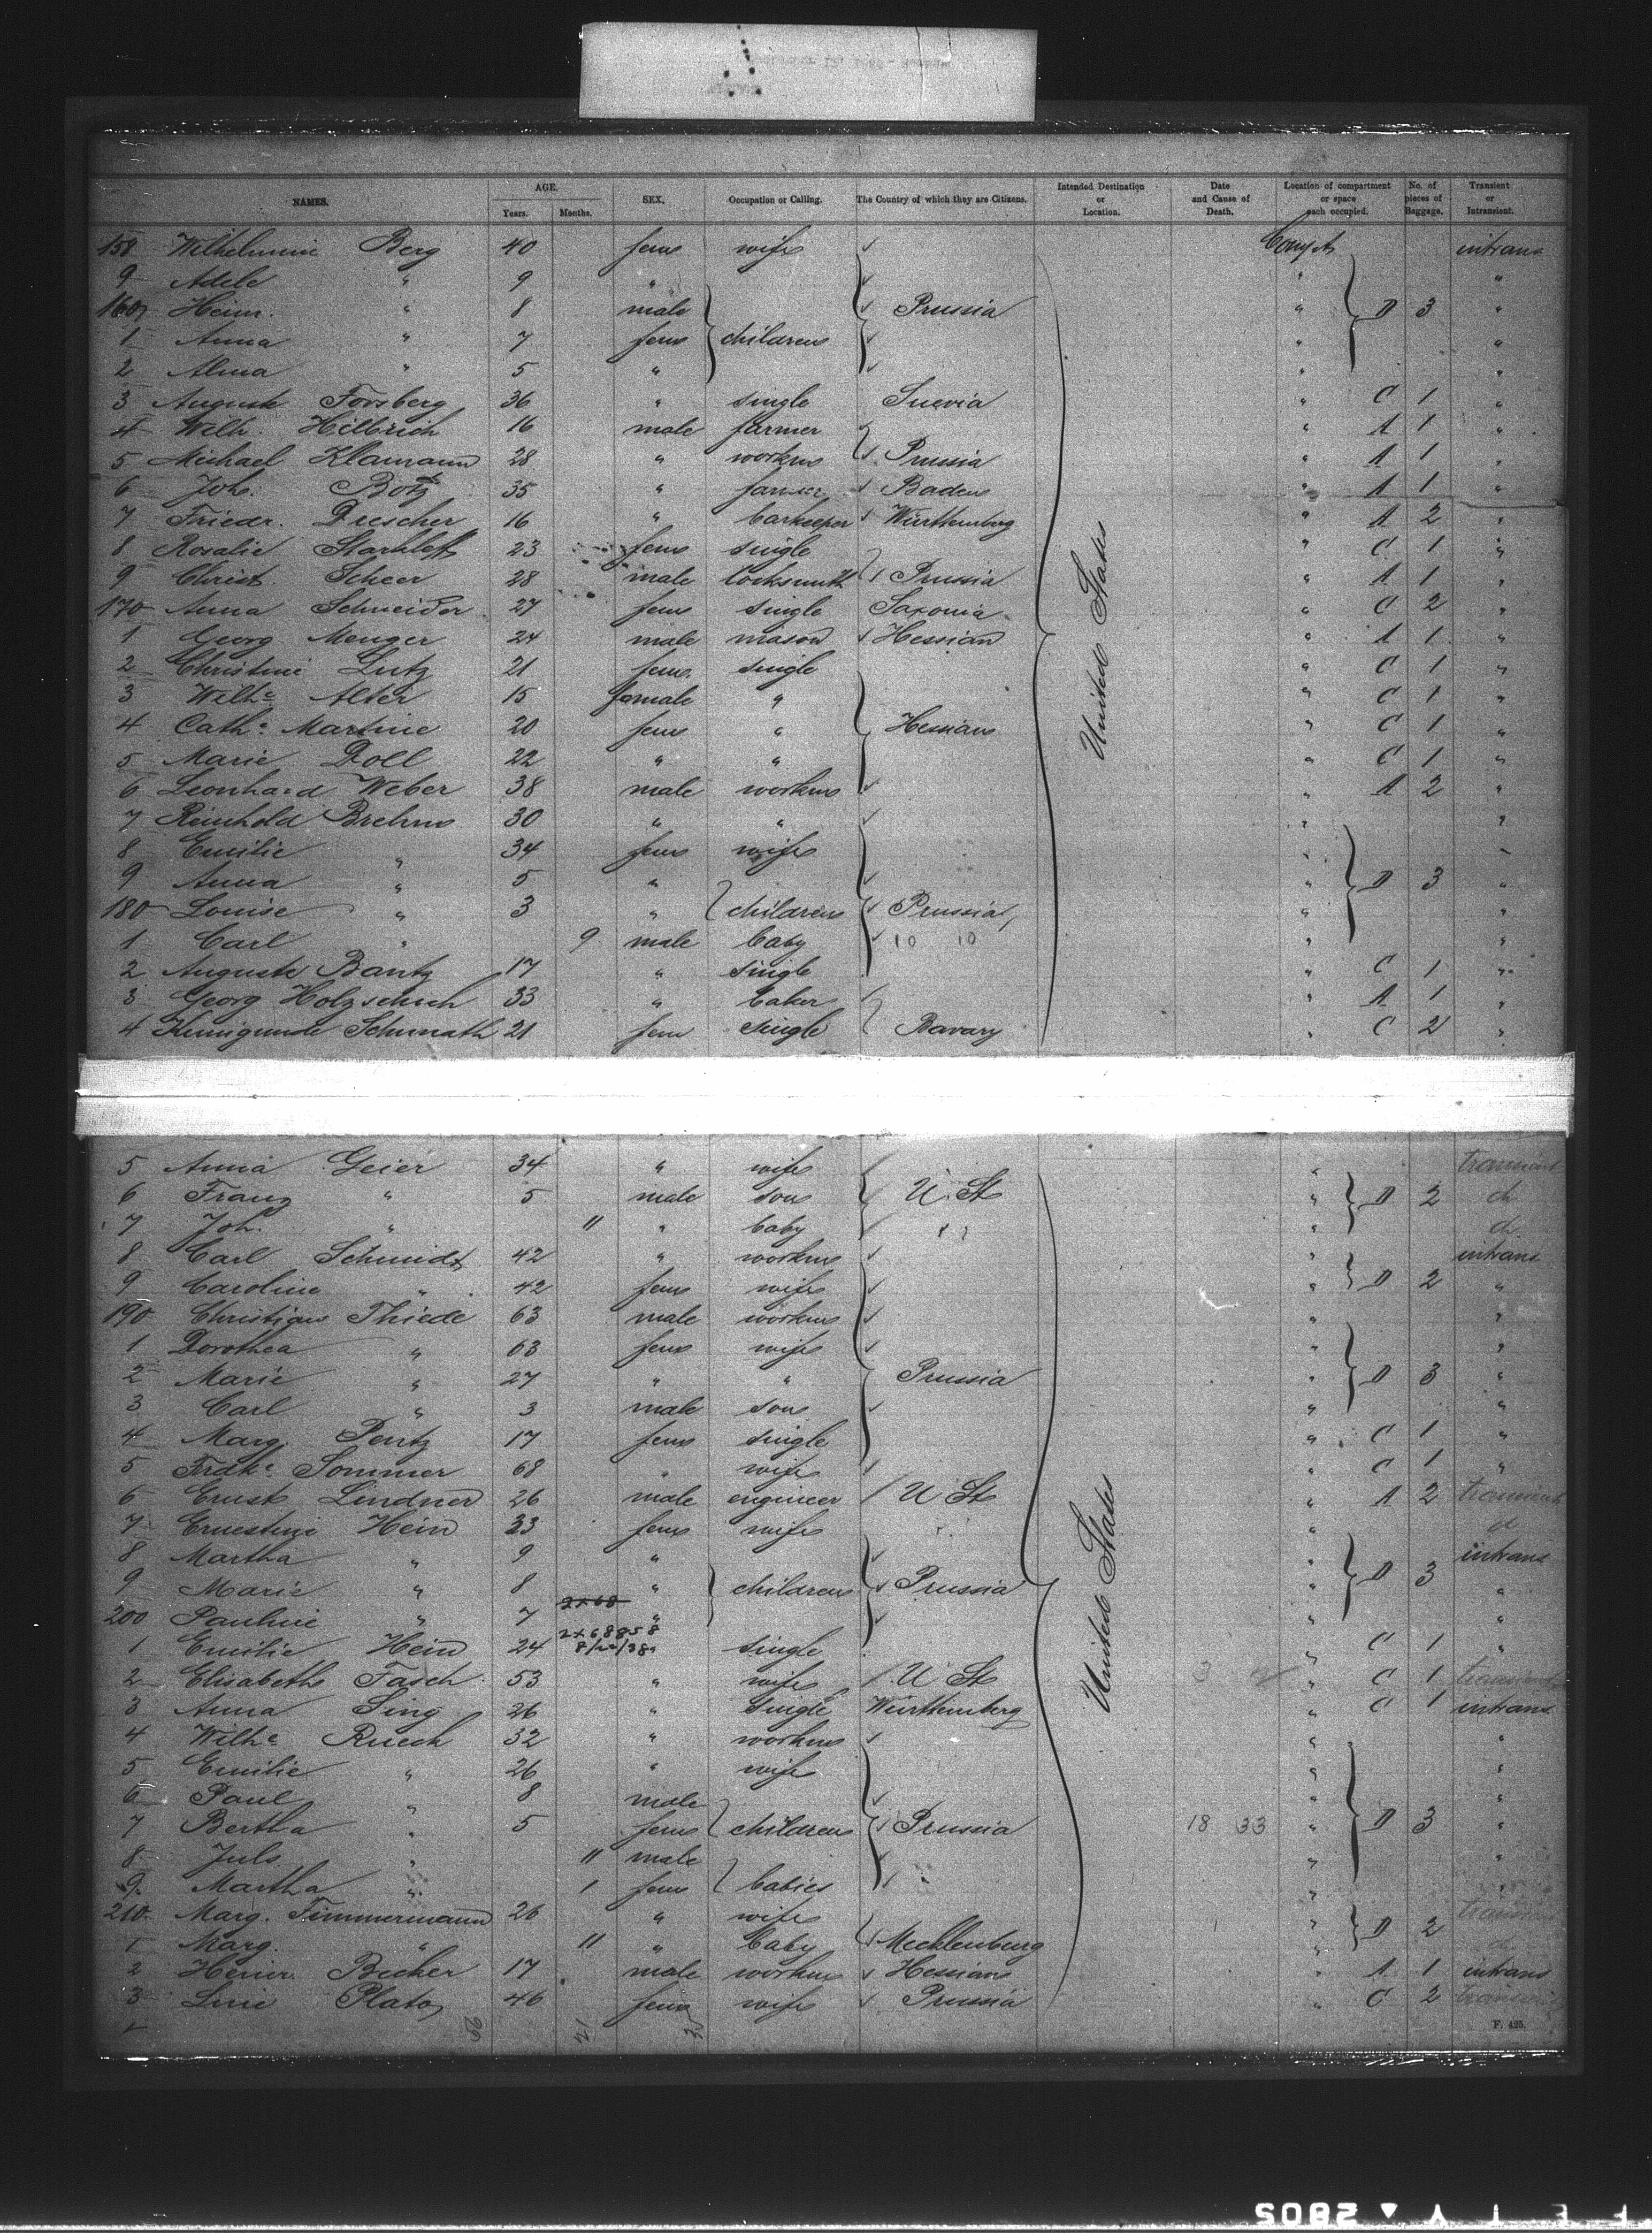 NAMES. AGE. Years. Months. SEX. Occupation or Calling. The Country of which they are Citizens. Intended Destination or Location. Date and Cause of Death. Location of compartment or space each occupied. No. of pieces of Baggage. Transient or Intransient.
158 Wilhelmine Berg 40 fem wife intrans
9 Adele " 9 " "
160 Heinr. " 8 male Prussia " D 3 "
1 Anna " 7 fem children " "
2 Alma " 5 " " "
3 Auguste Forsberg 36 " single Suevia " C 1 "
4 Wilh. Hillrich 16 male farmer " A 1 "
5 Michael Klamann 28 " workm Prussia " A 1 "
6 Joh. Botz 35 " farmer Baden " A 1 "
7 Friedr. Drescher 16 " barkeeper Württemberg " A 2 "
8 Rosalie Starkloff 23 fem single " C 1 "
9 Christ. Scheer 28 male locksmith Prussia " A 1 "
170 Anna Schneider 27 fem single Saxonia " C 2 "
1 Georg Menger 24 male mason Hessian " A 1 "
2 Christine Lutz 21 fem single " C 1 "
3 Wilhe Alter 15 female " " C 1 "
4 Cathe Martine 20 fem " Hessian " C 1 "
5 Marie Doll 22 " " " C 1 "
6 Leonhard Weber 38 male workm " A 2 "
7 Reinhold Brehm 30 " " " "
8 Emilie " 34 fem wife " "
9 Anna " 5 " " D 3 "
180 Louise " 3 " children Prussia " "
1 Carl " 9 male baby 10 10 " "
2 Auguste Bantz 17 " single " C 1 "
3 Georg Holzschuh 33 " baker " A 1 "
4 Kunigunde Schunath 21 fem single Bavary " C 2 "
United States
5 Anna Geier 34 " wife " transient
6 Franz " 5 male son U. St " D 2 do
7 Joh. " 11 " baby " do
8 Carl Schmidt 42 " workm " intrans
9 Caroline " 42 fem wife " D 2 "
190 Christian Thiede 63 male workm " "
1 Dorothea " 63 fem wife " "
2 Marie " 27 " " Prussia " D 3 "
3 Carl " 3 male son " "
4 Marg. Pentz 17 fem single " C 1 "
5 Frdke Sommer 68 " wife " C 1 "
6 Ernst Lindner 26 male engineer U St " A 2 transient
7 Ernestine Hein 33 fem wife "
8 Martha " 9 " " intrans
9 Marie " 8 " children Prussia " D 3 "
200 Pauline " 7 " " "
1 Emilie Hein 24 single " C 1 "
2 Elisabeth Fasch 53 " wife U St " C 1 transient
3 Anna Sing 26 " single Württemberg " C 1 intrans
4 Wilhe Rusch 32 " workm " "
5 Emilie " 26 " wife " "
6 Paul " 8 male " "
7 Bertha " 5 fem children Prussia 18 33 " D 3 "
8 Juls " 11 male " "
9 Martha " 1 fem babies " "
210 Marg. Timmermann 26 " wife " transient
1 Marg. " 11 " baby Mecklenburg " D 2
2 Heinr. Becker 17 male workm Hessian " A 1 intrans
3 Line Plato 46 fem wife Prussia " C 2 transient
United States
F. 425.